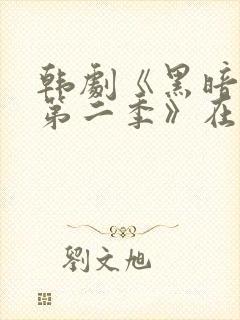 韩劇《黑暗
第二季》在
劉文旭